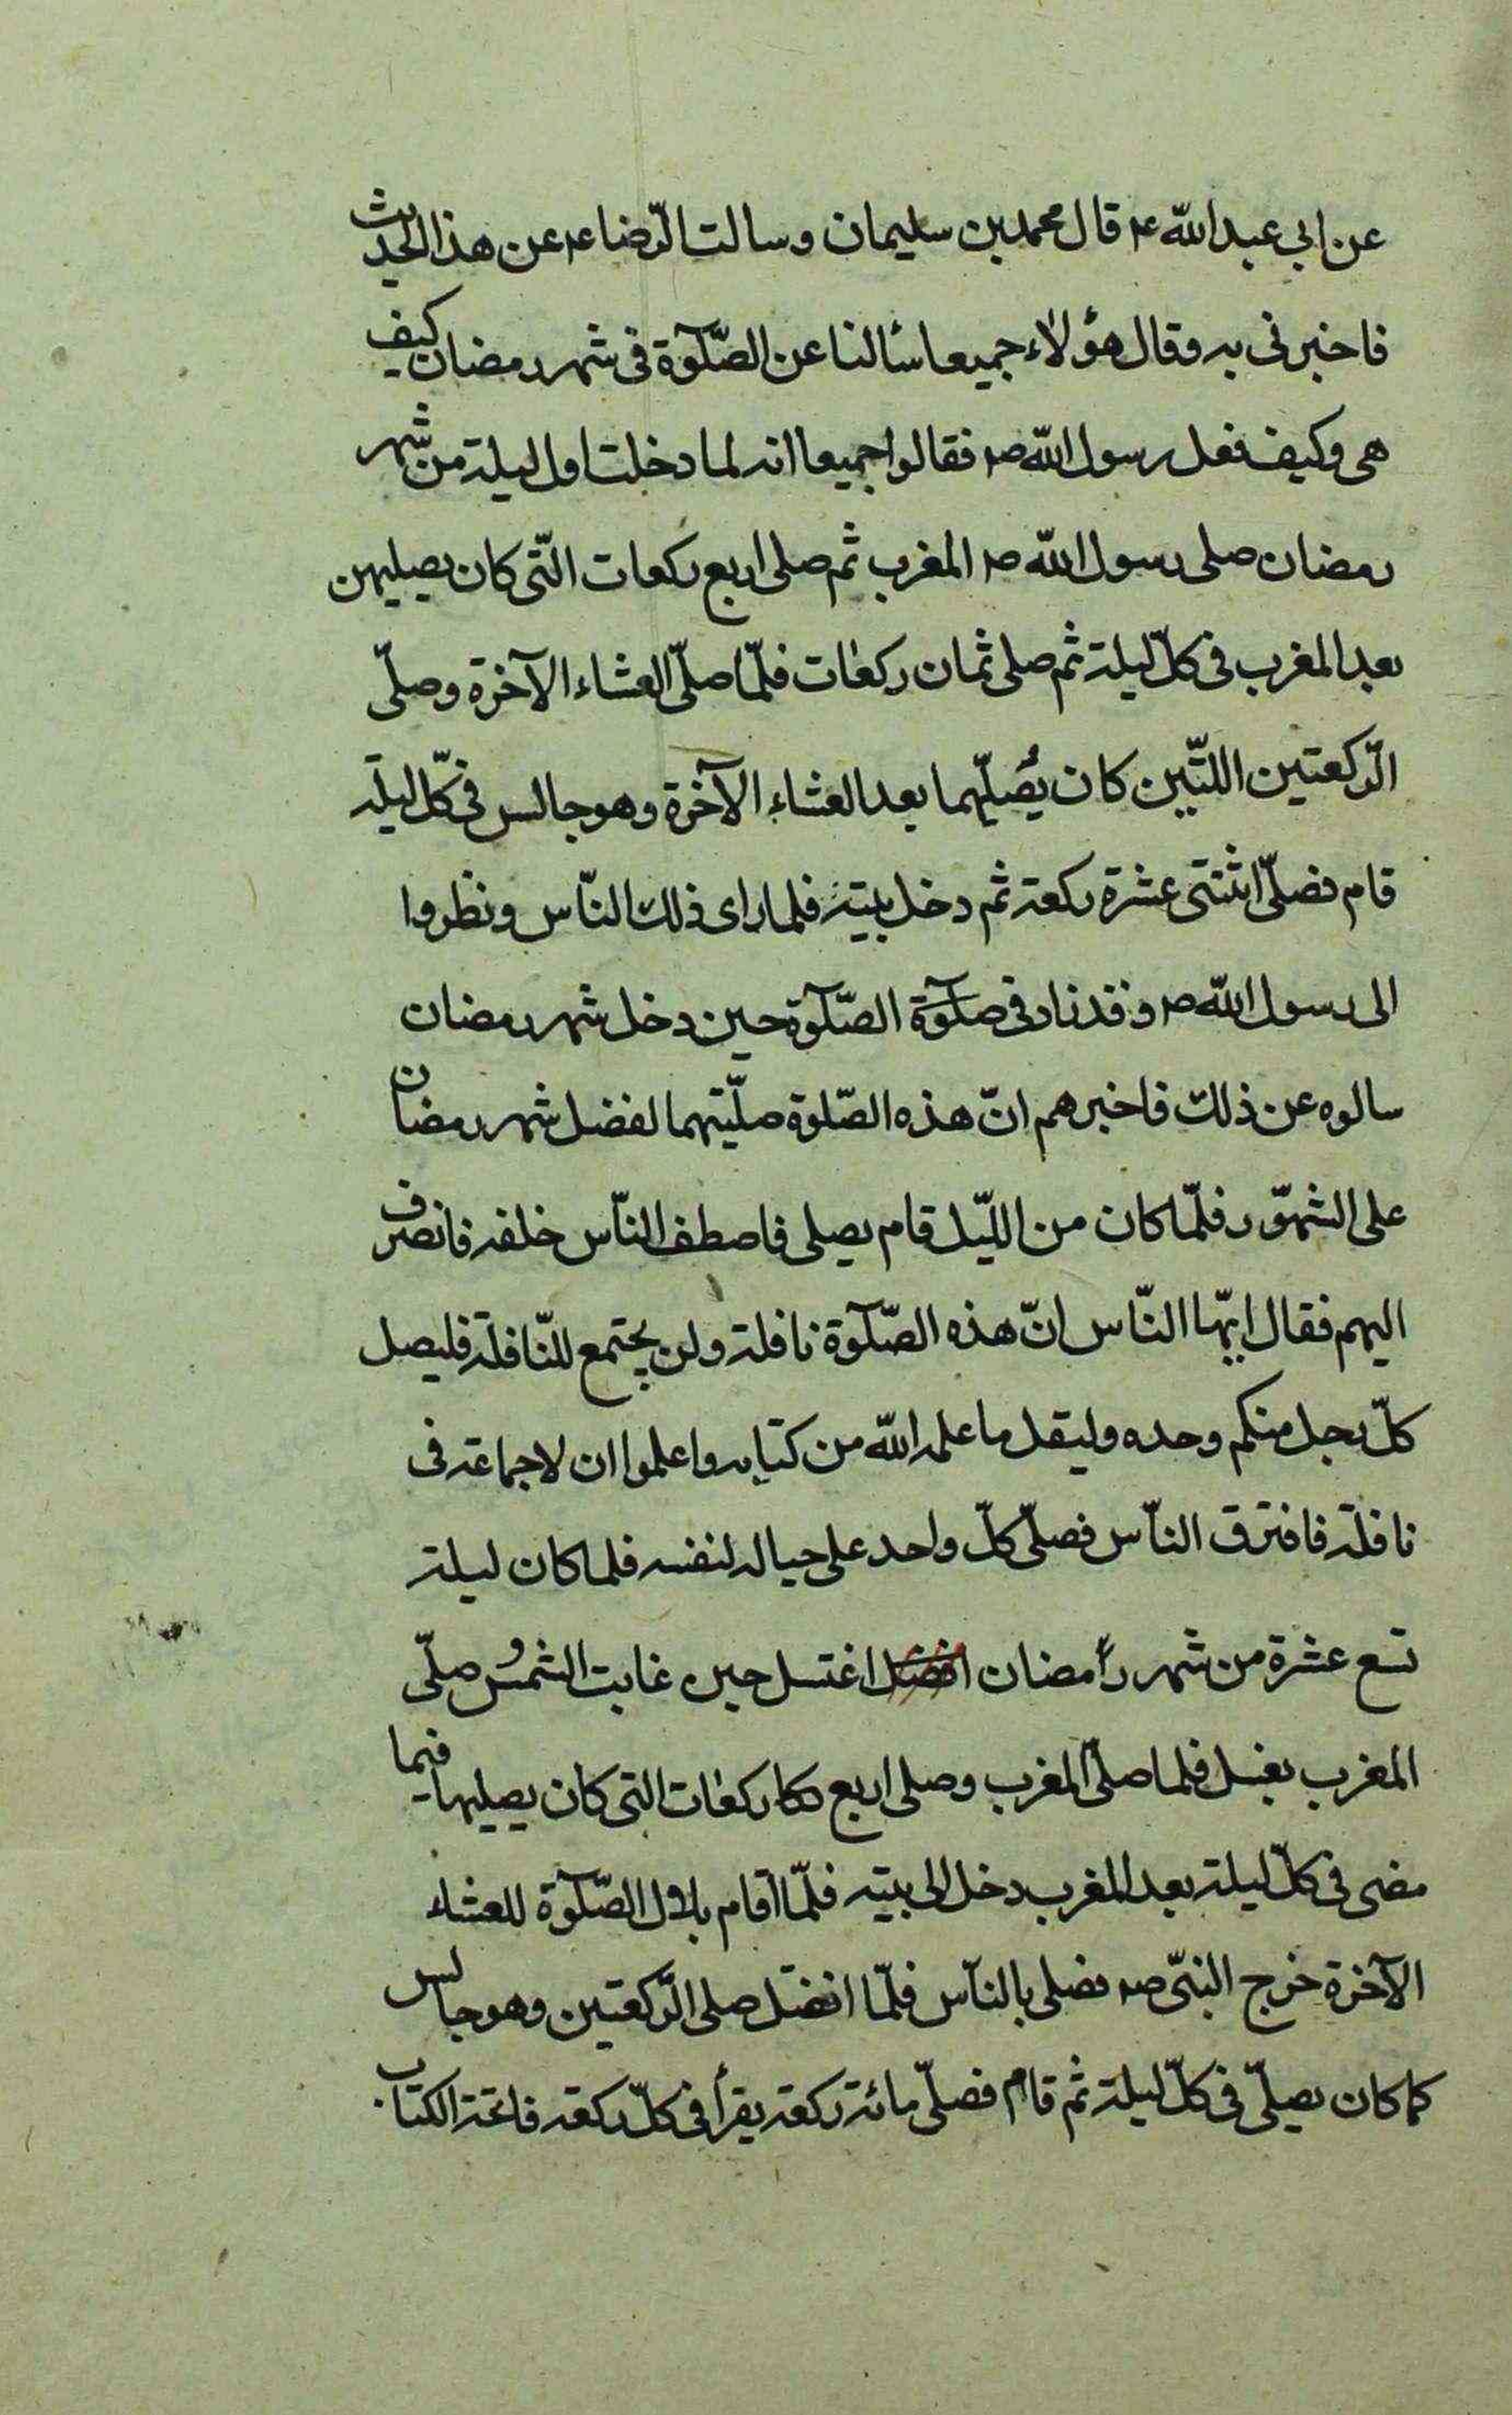 عن ابى عبد الله ع قال محمد بن سليمان وسالت الرّضا ع عن هذا الحديث
فاخبرنى به وقال هؤلاء جميعا سألنا عن الصّلوٓة فى شهر رمضان كيف
هى وكيف فعل رسول اللّه ص فقالوا جميعا انه لما دخلت اول ليلة من شهر
رمضان صلى رسول اللّه ص المغرب ثم صلى اربع ركعات الّتى كان يصليهن
بعد المغرب فى كلّ ليلة ثم صلى ثمان ركعات فلمّا صلّى العشاء الآخرة وصلّى
الرّكعتين اللتّين كان يُصَليّهما بعد العشاء الآخرة وهو جالس فى كلّ ليلة
قام فصلّى اثنتى عشرة ركعة ثم دخل بيته فلما راى ذلك النّاس ونظروا
الى رسول اللّه ص وقد زاد فى صلوٓة الصّلوٓة حين دخل شهر رمضان
سالوه عن ذلك فاخبرهم انّ هذه الصّلوة صلّيتهما لفضل شهر رمضان
على الشهّور فلمّا كان من اللّيل قام يصلى فاصطف النّاس خلفه فانصرف
اليهم فقال ايّها النّاس انّ هذه الصّلوٓة نافلة ولن يجتمع للنّافلة فليصل
كلّ رجل منكم وحده وليقل ما علمه اللّه من كتابه واعلموا ان لا جماعة فى
نافلة فافترق النّاس فصلّى كلّ واحد على حياله لنفسه فلما كان ليلة
تسع عشرة من شهر رمضان اغتسل حين غابت الشمس وصلّى
المغرب بغسل فلما صلّى المغرب وصلى اربع ركعات التى كان يصليها فيما
مضى فى كلّ ليلة بعد المغرب دخل الى بيته فلمّا اقام بلال الصّلوٓة للعشاء
الآخرة خرج النبّى ص فصلى بالنّاس فلمّا انفتل صلى الرّكعتين وهو جالس
كما كان يصلّى فى كلّ ليلة ثم قام فصلّى مائة ركعة يقرأ فى كلّ ركعة فاتحة الكتاب